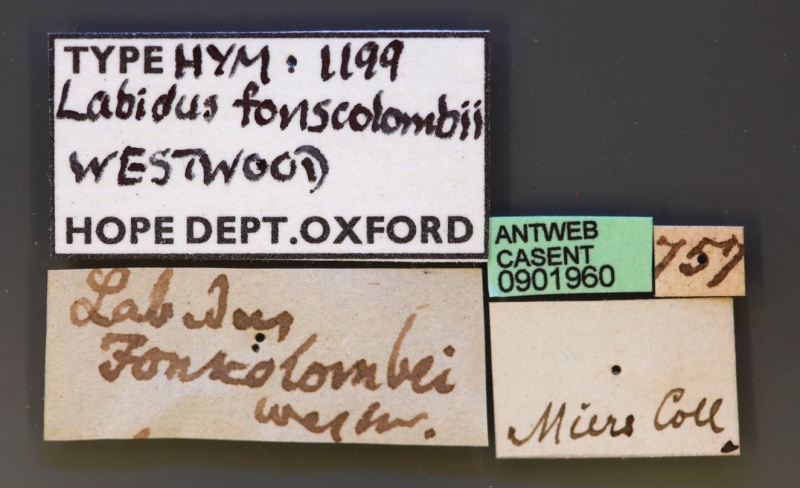 TYPE HYM: 1199
Labidus fonscolombii
WESTWOOD
HOPE DEPT. OXFORD
ANTWEB
CASENT
0901960
757
Labidus
Fonscolombei
Westw.
Miers Coll.